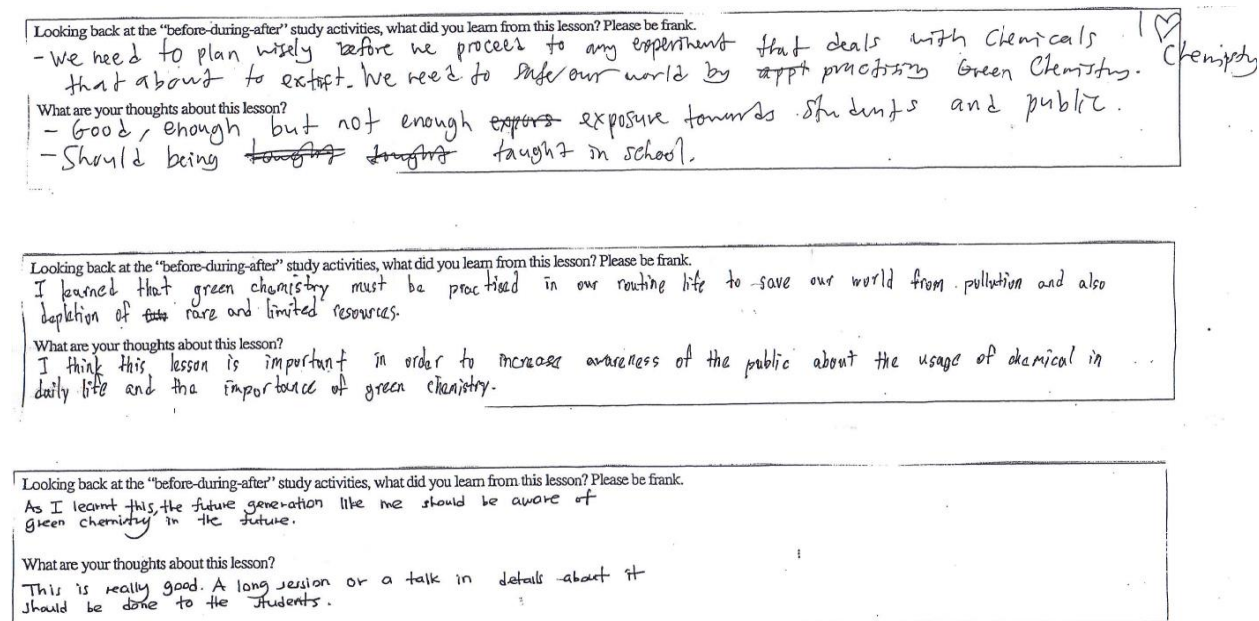 Looking back at the "before-during-after" study activities, what did you learn from this lesson? Please be frank.
- We need to plan wisely before we proceed to any experiment that deals with Chemicals I ♡ Chemistry
that about to extint. We need to safe our world by practising Green Chemistry.
What are your thoughts about this lesson?
- Good, enough but not enough exposure towards students and public.
- Should being taught in school.
Looking back at the "before-during-after" study activities, what did you learn from this lesson? Please be frank.
I learned that green chemistry must be practised in our routine life to save our world from pollution and also
depletion of rare and limited resources.
What are your thoughts about this lesson?
I think this lesson is important in order to increase awareness of the public about the usage of chemical in
daily life and the importance of green chemistry.
Looking back at the "before-during-after" study activities, what did you learn from this lesson? Please be frank.
As I learnt this, the future generation like me should be aware of
green chemistry in the future.
What are your thoughts about this lesson?
This is really good. A long session or a talk in details about it
should be done to the students.